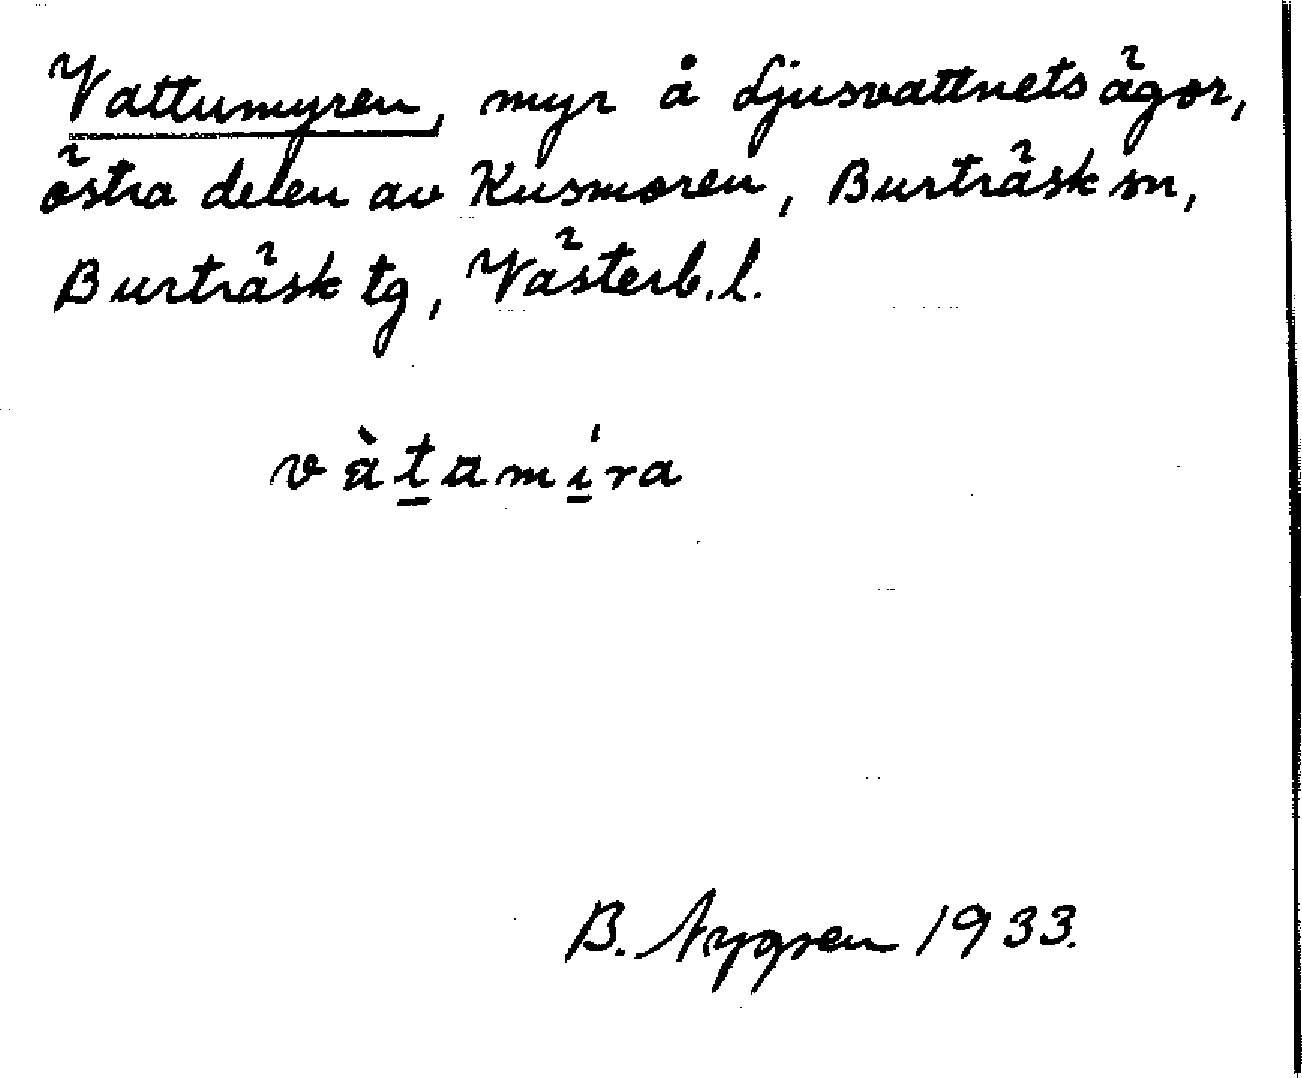 Vattumyren, myr å Ljusvattnets ägor,
östra delen av Kusmoren, Burträsk sn,
Burträsk tg, Västerb. l.
vàt̲amí̲ra
B. Nygren 1933.